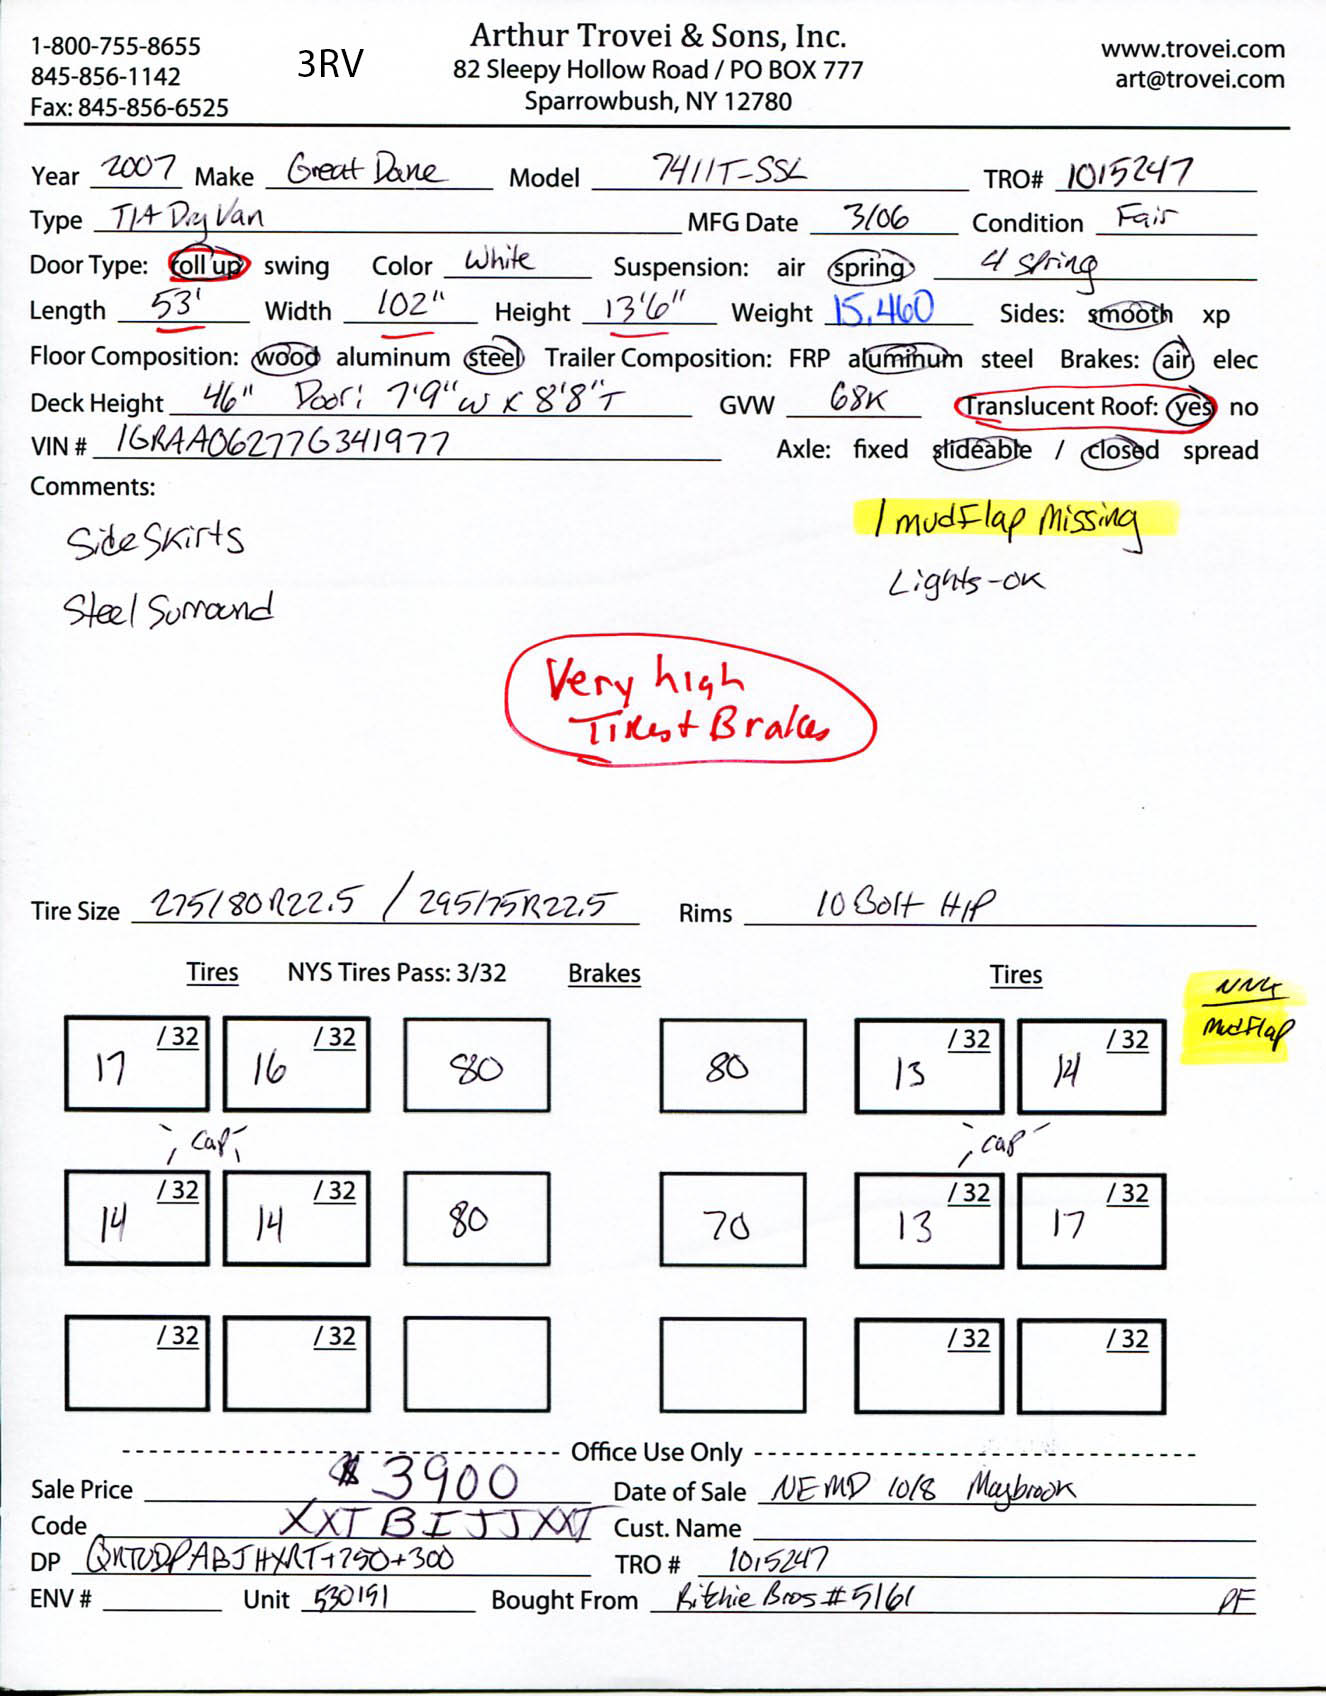 1-800-755-8655
845-856-1142
Fax: 845-856-6525
3RV
Arthur Trovei & Sons, Inc.
82 Sleepy Hollow Road / PO BOX 777
Sparrowbush, NY 12780
www.trovei.com
art@trovei.com
Year 2007 Make Great Dane Model 7411T-SSL TRO# 1015247
Type T/A Dry Van MFG Date 3/06 Condition Fair
Door Type: roll up swing Color White Suspension: air spring 4 spring
Length 53' Width 102" Height 13'6" Weight 15,460 Sides: smooth xp
Floor Composition: wood aluminum steel Trailer Composition: FRP aluminum steel Brakes: air elec
Deck Height 46" Door: 7'9"W x 8'8"T GVW 68K Translucent Roof: yes no
VIN # 1GRAA06277G341977 Axle: fixed slideable / closed spread
Comments:
1 mudFlap Missing
Side Skirts
Lights-OK
Steel Surround
Very high
Tires + Brakes
Tire Size 275/80R22.5 / 295/75R22.5 Rims 10 Bolt H/P
Tires NYS Tires Pass: 3/32 Brakes Tires
NNY
MudFlap
17 /32 16 /32 80 80 13 /32 14 /32
cap cap
14 /32 14 /32 80 70 13 /32 17 /32
/32 /32 /32 /32
Office Use Only
Sale Price $3900 Date of Sale NEMD 10/8 Maybrook
Code XXTBIJJXXT Cust. Name
DP +250+300 TRO # 1015247
ENV # Unit 530191 Bought From Ritchie Bros #5161 PF